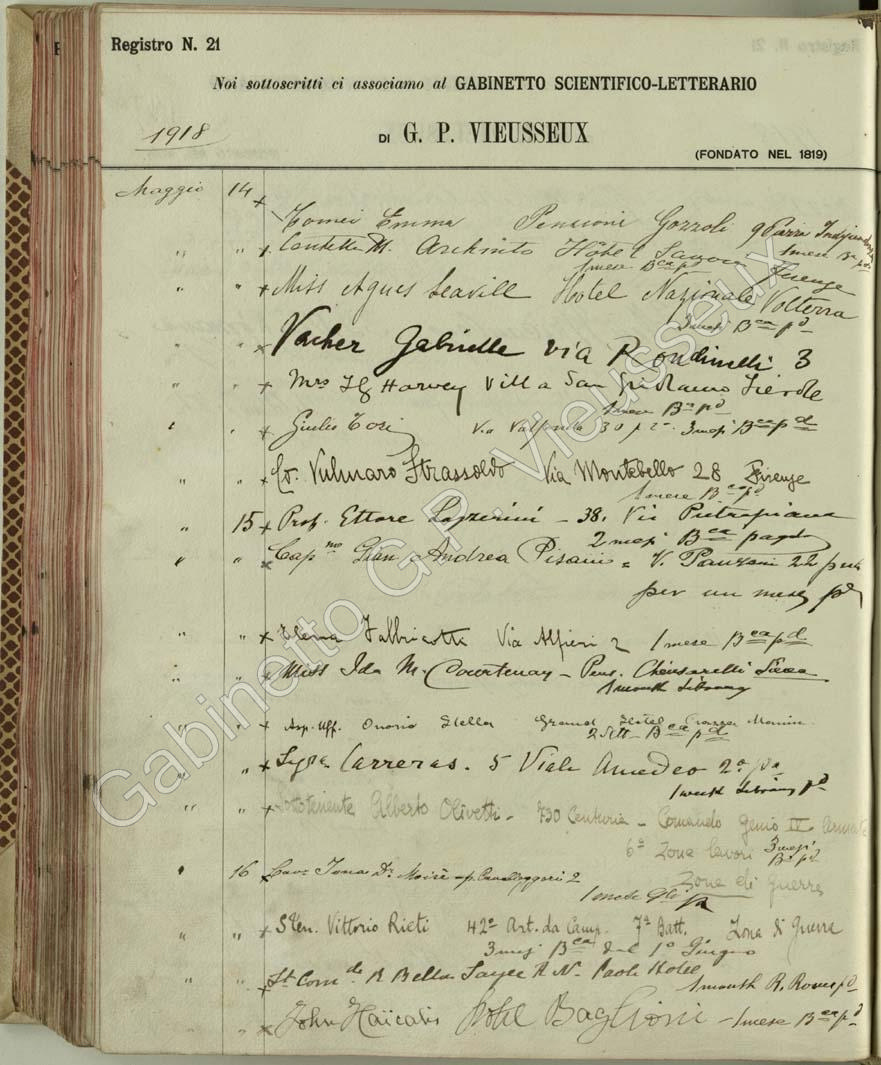 Registro N. 21
Noi sottoscritti ci associamo al GABINETTO SCIENTIFICO-LETTERARIO
1918
DI G. P. VIEUSSEUX
(FONDATO NEL 1819)
Maggio 14 x Comei Emma Pensione Gozzoli 9 Piazza
1 mese Bca pd
" " x M. Archinto Hôtel Savoia Firenze
1 mese Bca pd
" " x Miss Agnes Leavill Hotel Nazionale Volterra
3 mesi Bca pd
" x Vacher Gabrielle via Rondinelli 3
" " x Mrs Harvey Villa San Fiesole
1 mese Bca pd
" " x Giulio Tosi Via Valfonda 30 3 mesi Bca pd
" " x Co. Vulmaro Strassoldo Via Montebello 28 Firenze
1 mese Bca pd
" 15 x Prof. Ettore Lazzerini - 38, Via Pietrapiana
2 mesi Bca pagato
" " x Capno Gian Andrea Pisani = V. Panzani 22
per un mese pd
" " x Elena Fabbricotti Via Alfieri 2 1 mese Bca pd
" " x Miss Ida M. Courtenay - Pens. Chiusarelli Siena
1 month Library
" " x Asp. Uff. Onorio Stella Grand Hotel Piazza Manin
2 Sett. Bca pd
" " x Sigra Carreras. 5 Viale Amedeo 2o po
1 week Library pd
" " x Sottotenente Alberto Olivetti - 730 Centuria - Comando Genio IV Armata
6a Zona lavori 3 mesi Bca pd
Zona di guerra
" 16 x Cav. Jona Dr. Moisè 2
1 mese pd
" " x STen. Vittorio Rieti 42o Art. da Camp. 7a Batt. Zona di Guerra
3 mesi Bca dal 1o Giugno
" " x Lt Comde R Bellan Sayce R N. Paoli Hotel
1 month R. Rooms pd
" x John Haïcalis Hotel Baglioni - 1 mese Bca pd
Gabinetto G.P. Vieusseux